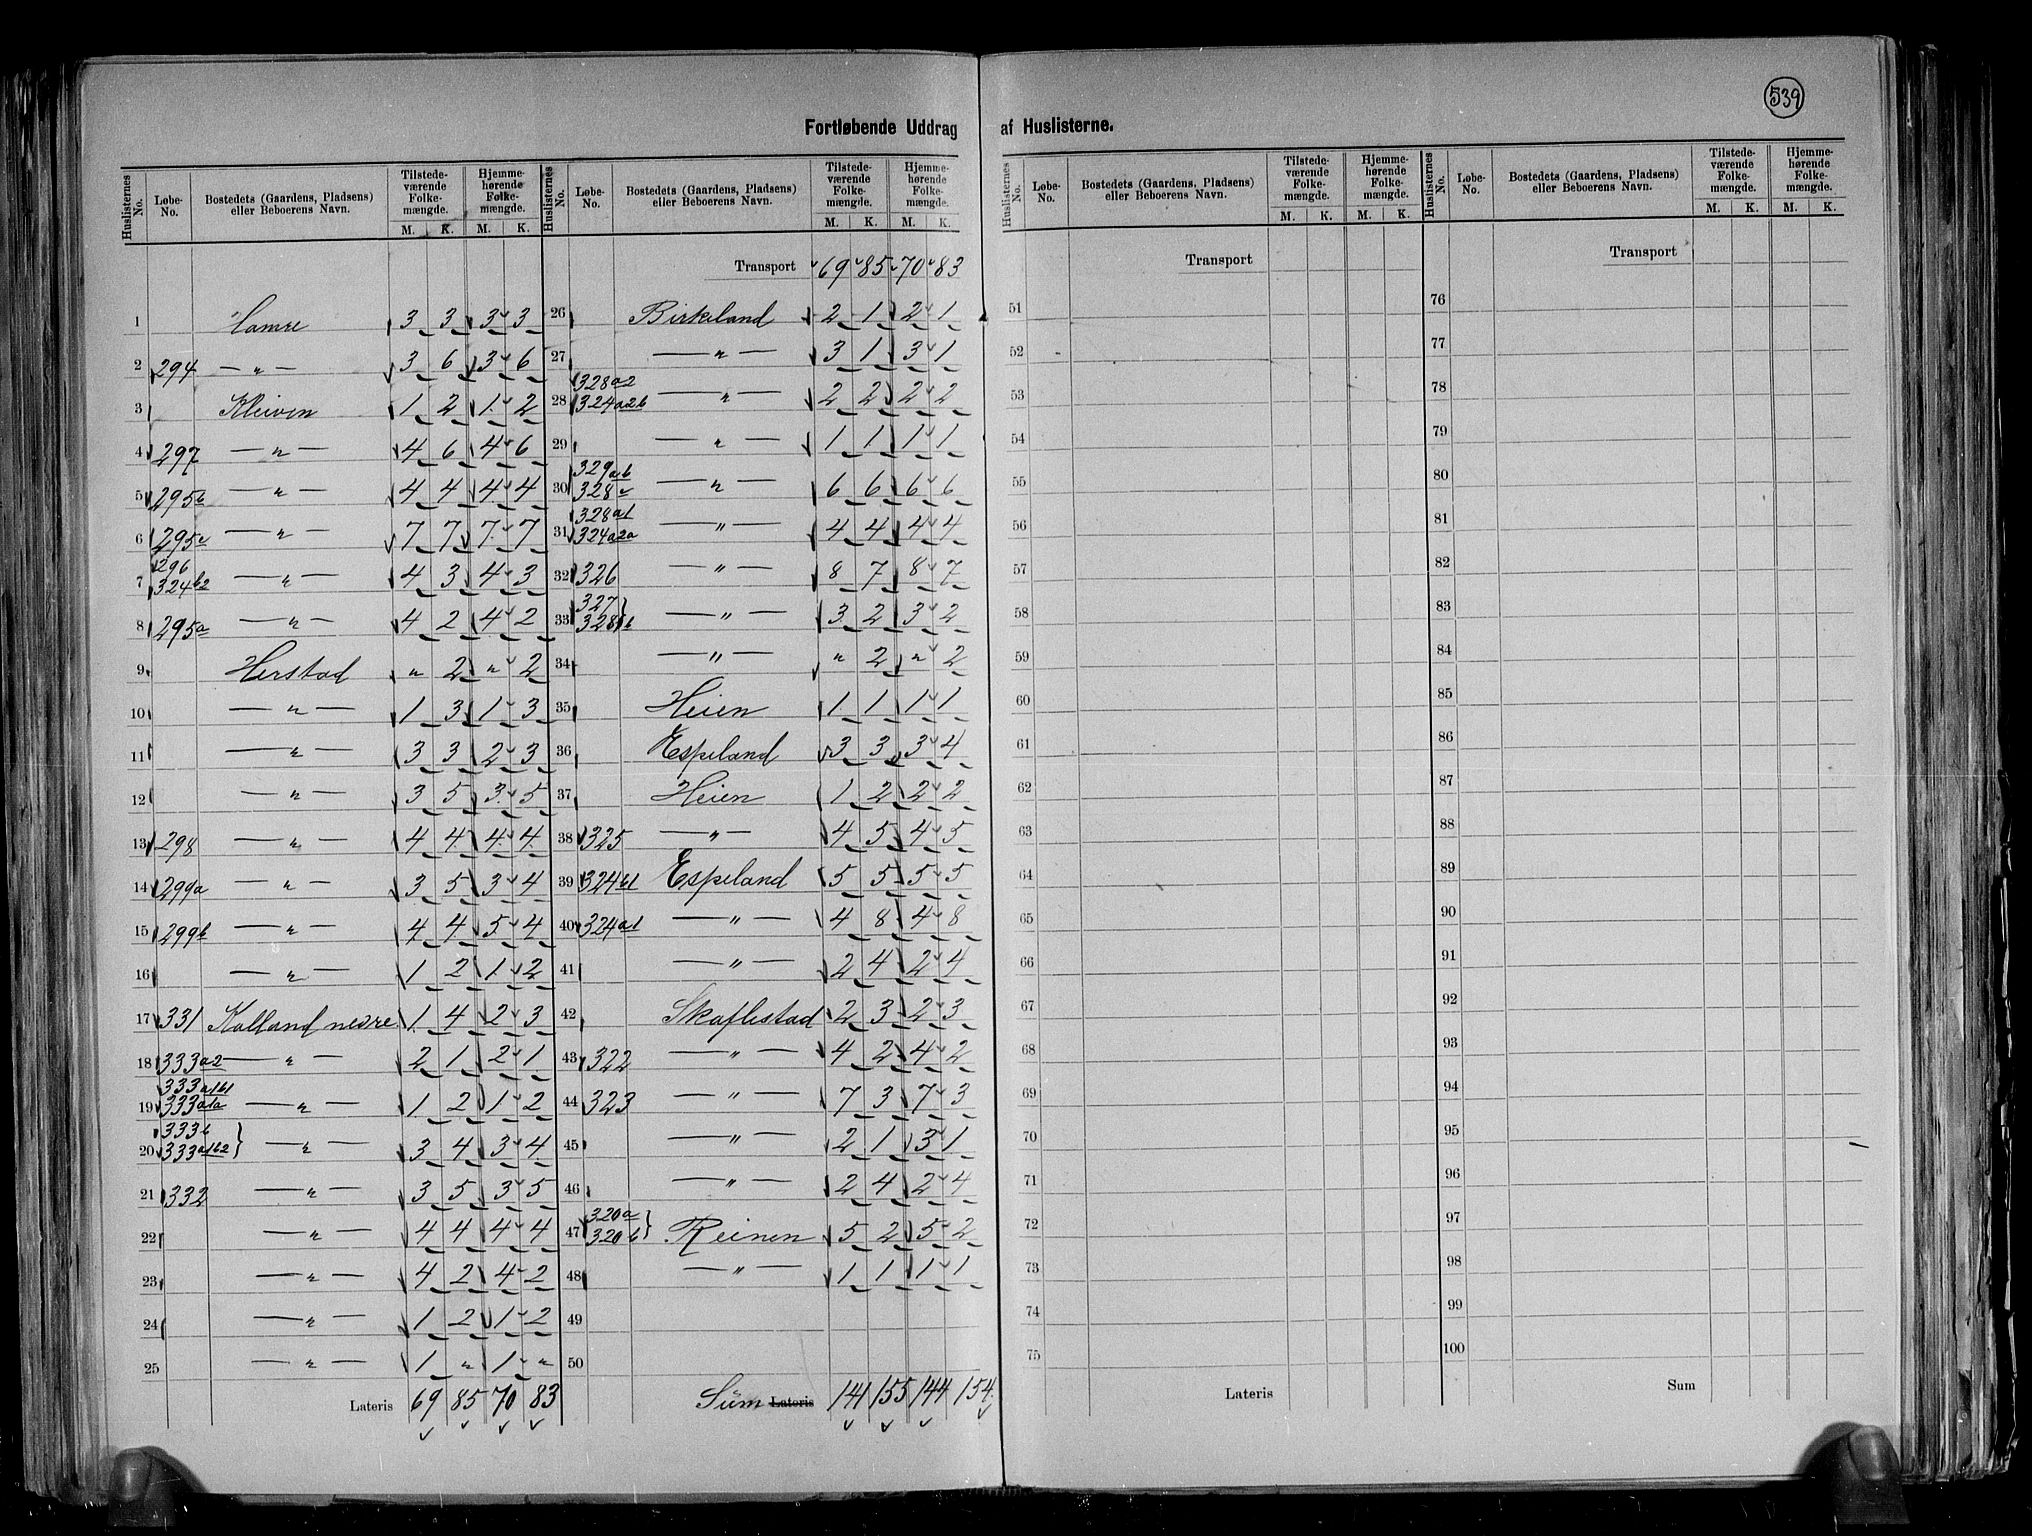 539
Fortløbende Uddrag af Huslisterne.
Huslisternes No. Løbe-No. Bostedets (Gaardens, Pladsens) eller Beboerens Navn. Tilstede-værende Folke-mængde. M. K. Hjemme-hørende Folke-mængde. M. K.
1 Hamre 3 3 3 3
2 294 — " — 3 6 3 6
3 Kleiven 1 2 1 2
4 297 — " — 4 6 4 6
5 295b — " — 4 4 4 4
6 295c — " — 7 7 7 7
7 296 324b2 — " — 4 3 4 3
8 295a — " — 4 2 4 2
9 Herstad " 2 " 2
10 — " — 1 3 1 3
11 — " — 3 3 2 3
12 — " — 3 5 3 5
13 298 — " — 4 4 4 4
14 299a — " — 3 5 3 4
15 299b — " — 4 4 5 4
16 — " — 1 2 1 2
17 331 Kalland nedre 1 4 2 3
18 333a2 — " — 2 1 2 1
19 333a1b1 333a1a — " — 1 2 1 2
20 333b 333a1b2 } — " — 3 4 3 4
21 332 — " — 3 5 3 5
22 — " — 4 4 4 4
23 — " — 4 2 4 2
24 — " — 1 2 1 2
25 — " — 1 " 1 "
Lateris 69 85 70 83
Huslisternes No. Løbe-No. Bostedets (Gaardens, Pladsens) eller Beboerens Navn. Tilstede-værende Folke-mængde. M. K. Hjemme-hørende Folke-mængde. M. K.
Transport 69 85 70 83
26 Birkeland 2 1 2 1
27 — " — 3 1 3 1
28 328a2 324a2b — " — 2 2 2 2
29 — " — 1 1 1 1
30 329ab 328c — " — 6 6 6 6
31 328a1 324a2a — " — 4 4 4 4
32 326 — " — 8 7 8 7
33 327 328b } — " — 3 2 3 2
34 — " — " 2 " 2
35 Heien 1 1 1 1
36 Espeland 3 3 3 4
37 Heien 1 2 2 2
38 325 — " — 4 5 4 5
39 324b1 Espeland 5 5 5 5
40 324a1 — " — 4 8 4 8
41 — " — 2 4 2 4
42 Skaflestad 2 3 2 3
43 322 — " — 4 2 4 2
44 323 — " — 7 3 7 3
45 — " — 2 1 3 1
46 — " — 2 4 2 4
47 320a 320b } Reinen 5 2 5 2
48 — " — 1 1 1 1
49
50
Sum Lateris 141 155 144 154
Huslisternes No. Løbe-No. Bostedets (Gaardens, Pladsens) eller Beboerens Navn. Tilstede-værende Folke-mængde. M. K. Hjemme-hørende Folke-mængde. M. K.
Transport
51
52
53
54
55
56
57
58
59
60
61
62
63
64
65
66
67
68
69
70
71
72
73
74
75
Lateris
Huslisternes No. Løbe-No. Bostedets (Gaardens, Pladsens) eller Beboerens Navn. Tilstede-værende Folke-mængde. M. K. Hjemme-hørende Folke-mængde. M. K.
Transport
76
77
78
79
80
81
82
83
84
85
86
87
88
89
90
91
92
93
94
95
96
97
98
99
100
Sum